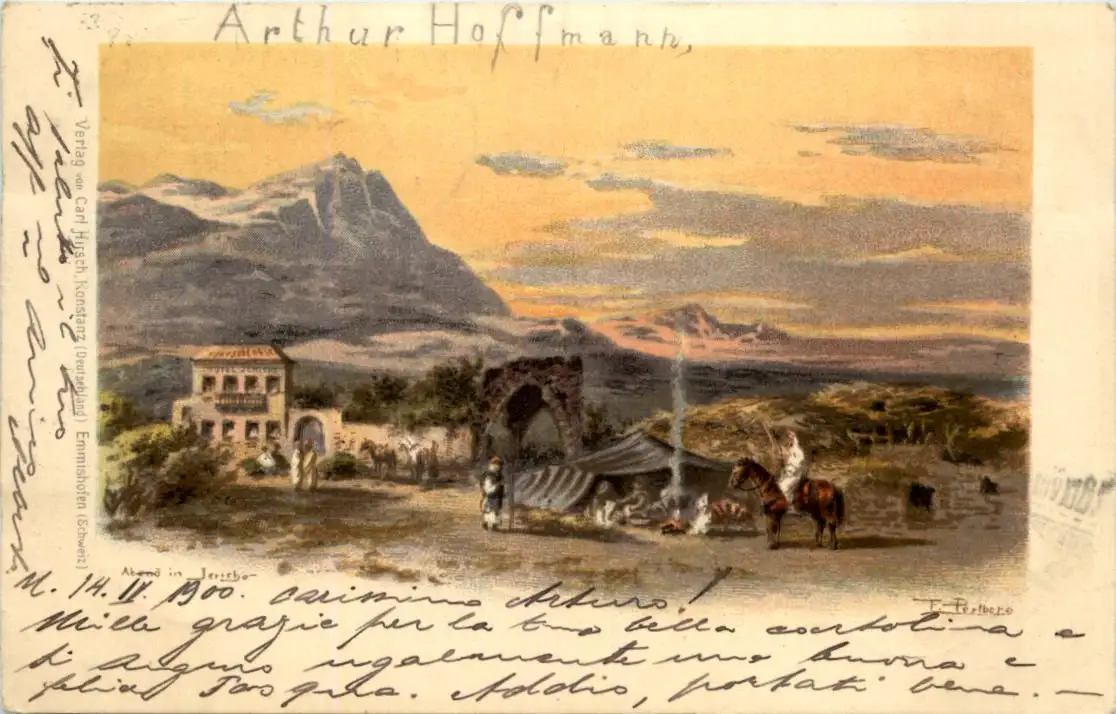 Arthur Hoffmann,
HOTEL JERICHO
Abend in Jericho
F. Perlberg
Verlag von Carl Hirsch, Konstanz (Deutschland) Emmishofen (Schweiz)
M. 14. IV. 1900. Carissimo Arturo!
Mille grazie per la tua bella cartolina e
ti auguro ugualmente una buona e
felice Pasqua. Addio, portati bene. —
Ti saluto il tuo
aff.mo Amico